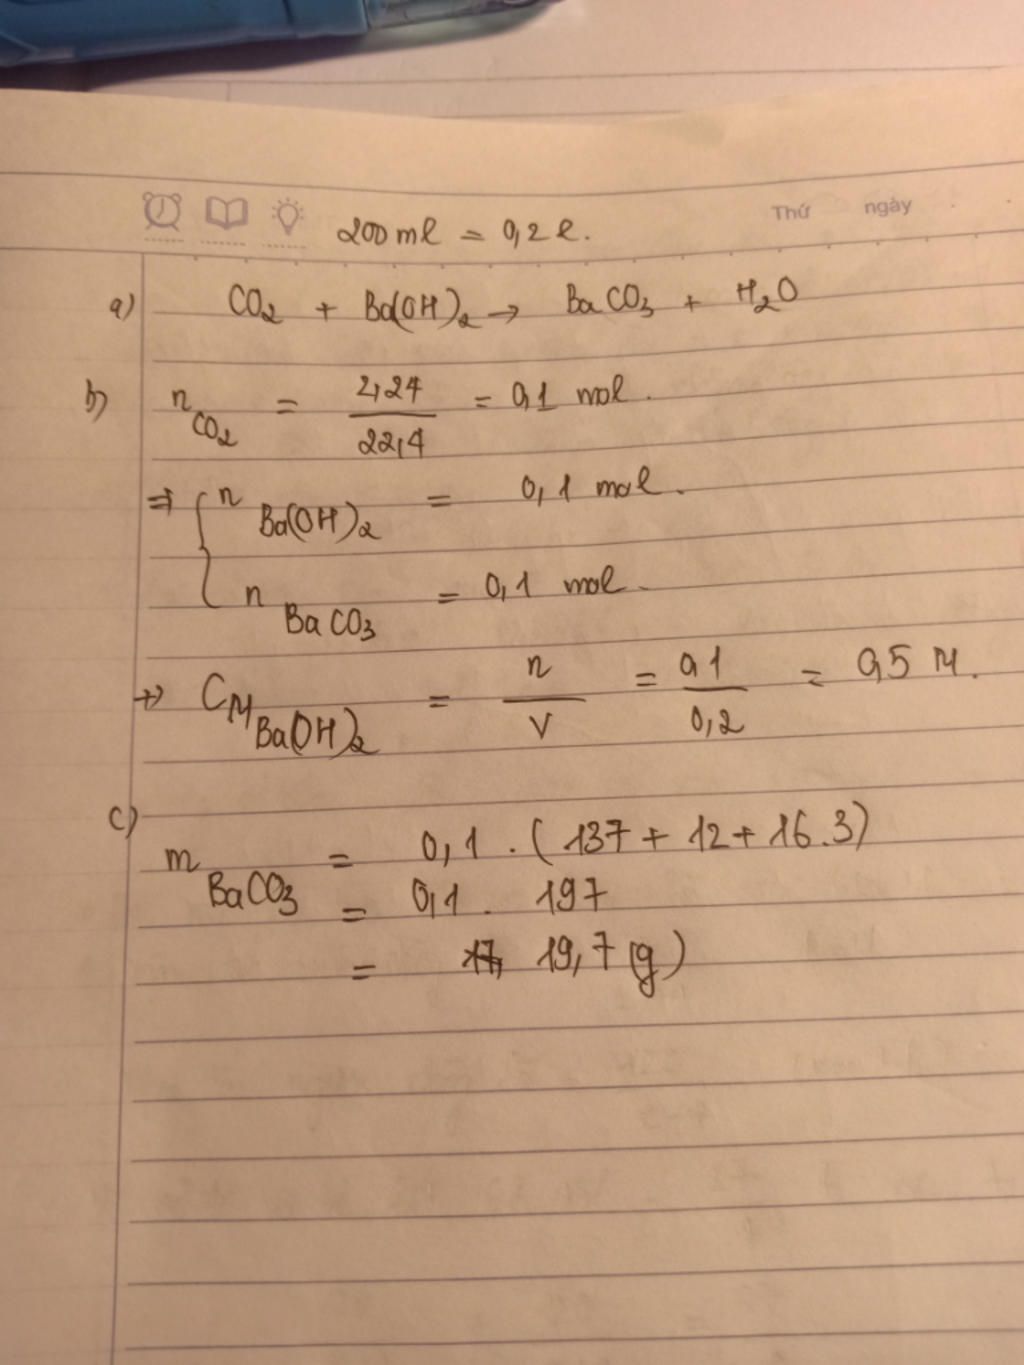 Thứ ngày
200ml = 0,2l.
a) CO₂ + Ba(OH)₂ → BaCO₃ + H₂O
b) n CO₂ = 2,24 / 22,4 = 0,1 mol.
⇒ { n Ba(OH)₂ = 0,1 mol.
n BaCO₃ = 0,1 mol.
→ CM Ba(OH)₂ = n / V = 0,1 / 0,2 = 0,5 M.
c) m BaCO₃ = 0,1 . (137 + 12 + 16.3)
= 0,1 . 197
= 19,7 (g)